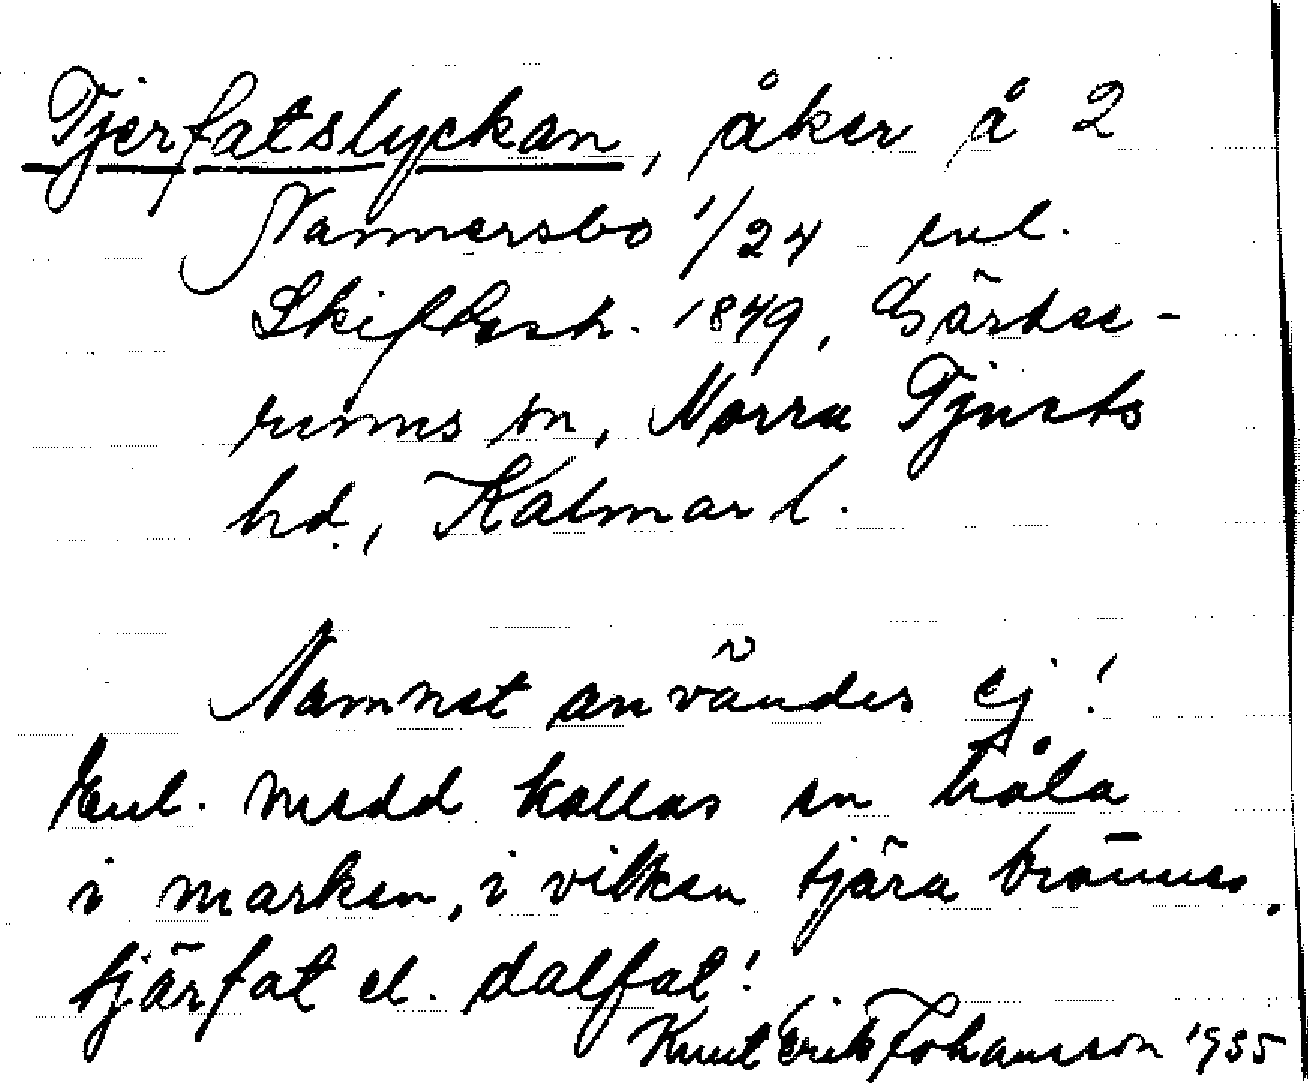 Tjerfatslyckan, åker å 2
Nannersbo 1/24 enl.
Skiftesh. 1849, Gärdse-
rums sn, Norra Tjusts
hd., Kalmar l.
Namnet användes ej!
Enl. medd kallas en håla
i marken, i vilken tjära brännes,
tjärfat el. dalfat!
Knut Erik Johansson 1935